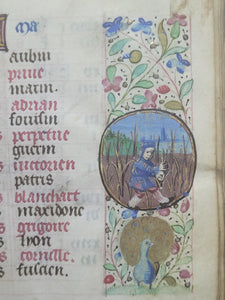 ma
aubin
priue
martin.
adrian
foursin
perpetue
guerin
victorien
patris
blanchart
macidone
gregoire
lyon
cornille
fuscien.